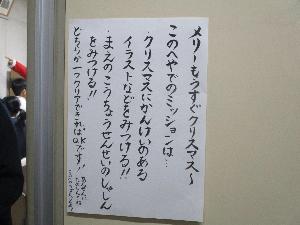 メリーもうすぐクリスマス〜
このへやでのミッションは…
・クリスマスにかんけいのある
イラストなどをみつける!!
・まえのこうちょうせんせいのしゃしん
をみつける!!
どちらか一つクリアできればOKです!